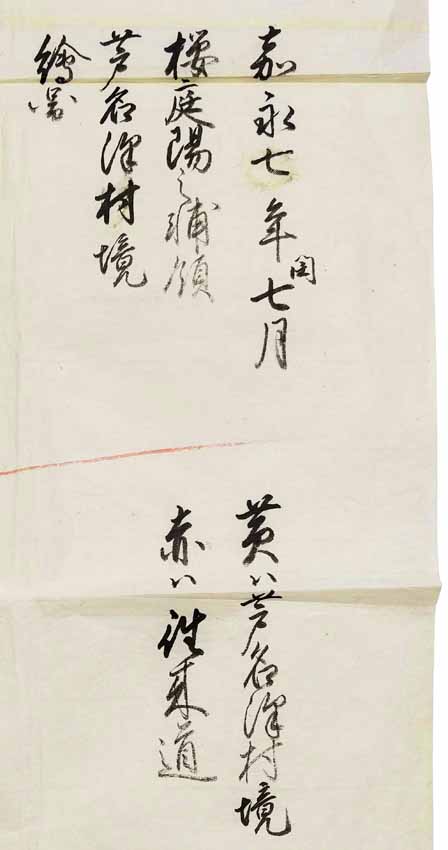 嘉永七年閏七月
桜庭陽之輔領
芦名澤村境
絵図
黄ハ芦名澤村境
赤ハ往来道